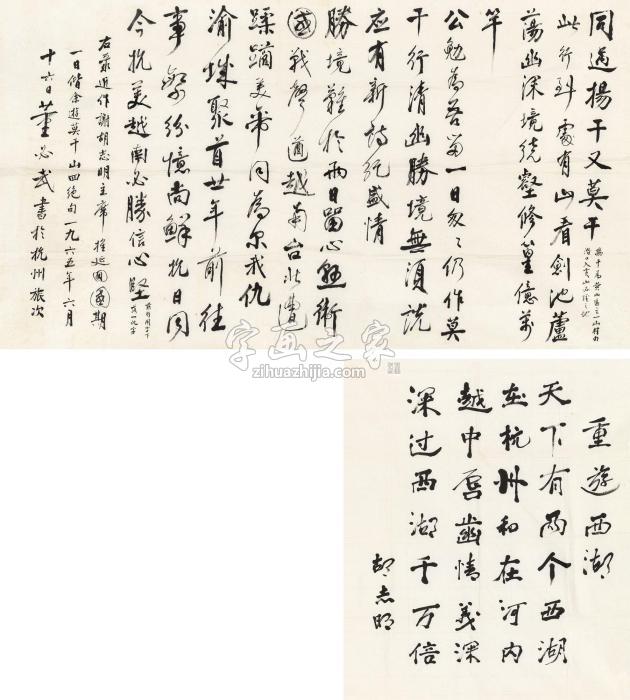 同過揚干又莫干
此行到處有山看劍池蘆
蕩幽深境繞壑修篁億萬
竿
公勉為吾留一日匆々仍作莫
干行清幽勝境無須說
应有新詩纪盛情
勝境難於兩日留心懸衛
國戰聲遒越南台北遭
蹂躪美帝同為尔我仇
渝城聚首廿年前往
事繁紛憶尚鮮抗日同
今抗美越南必勝信心堅
右最近作謝胡志明主席 推延回國期
一日偕余遊莫干山四絕句一九六五年六月
十六日董必武書於杭州旅次
重遊西湖
天下有两个西湖
在杭州和在河内
越中唇齒情義深
深过西湖千万倍
胡志明
字画之家
zihuazhijia.com